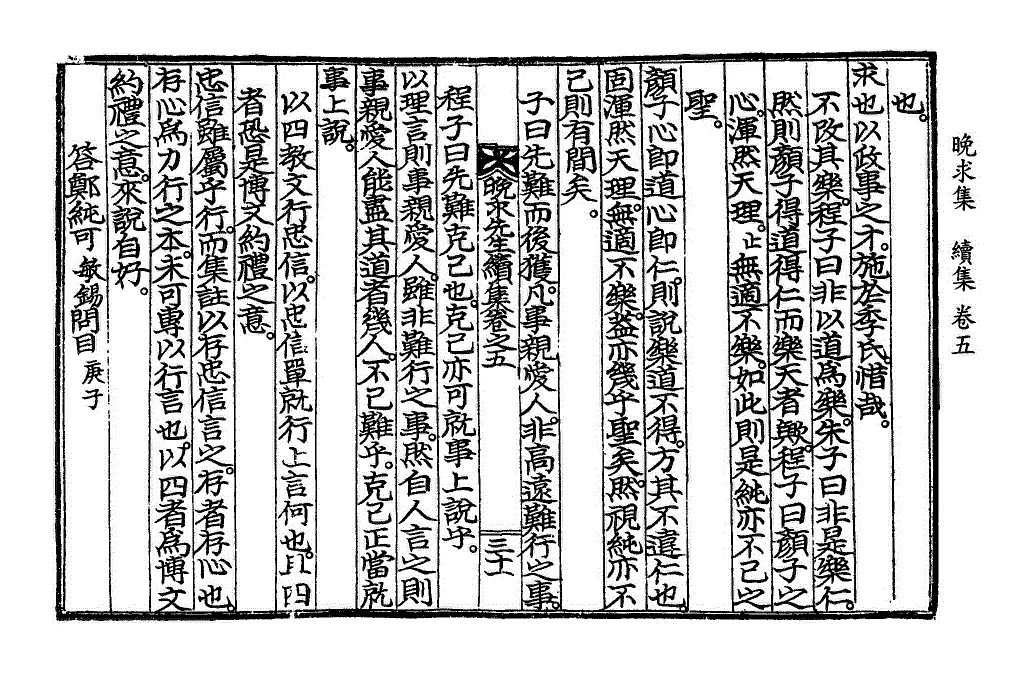 晩求集　續集　卷五
也。
求也以政事之才。施於季氏。惜哉。
不改其樂。程子曰非以道爲樂。朱子曰非是樂仁。
然則顏子得道得仁而樂天者歟。程子曰顏子之
心。渾然天理。止無適不樂。如此則是純亦不已之
聖。
顏子心卽道心卽仁。則說樂道不得。方其不違仁也。
固渾然天理。無適不樂。益亦幾乎聖矣。然視純亦不
已則有間矣。
子曰先難而後獲。凡事親愛人。非高遠難行之事。
晩求先生續集卷之五
三十
程子曰先難克己也。克己亦可就事上說乎。
以理言則事親愛人。雖非難行之事。然自人言之則
事親愛人能盡其道者幾人。不已難乎。克己正當就
事上說。
以四敎文行忠信。以忠信單就行上言何也。且四
者恐是博文約禮之意。
忠信雖屬乎行。而集註以存忠信言之。存者存心也。
存心爲力行之本。未可專以行言也。以四者爲博文
約禮之意。來說自好。
答鄭純可敏錫問目庚子